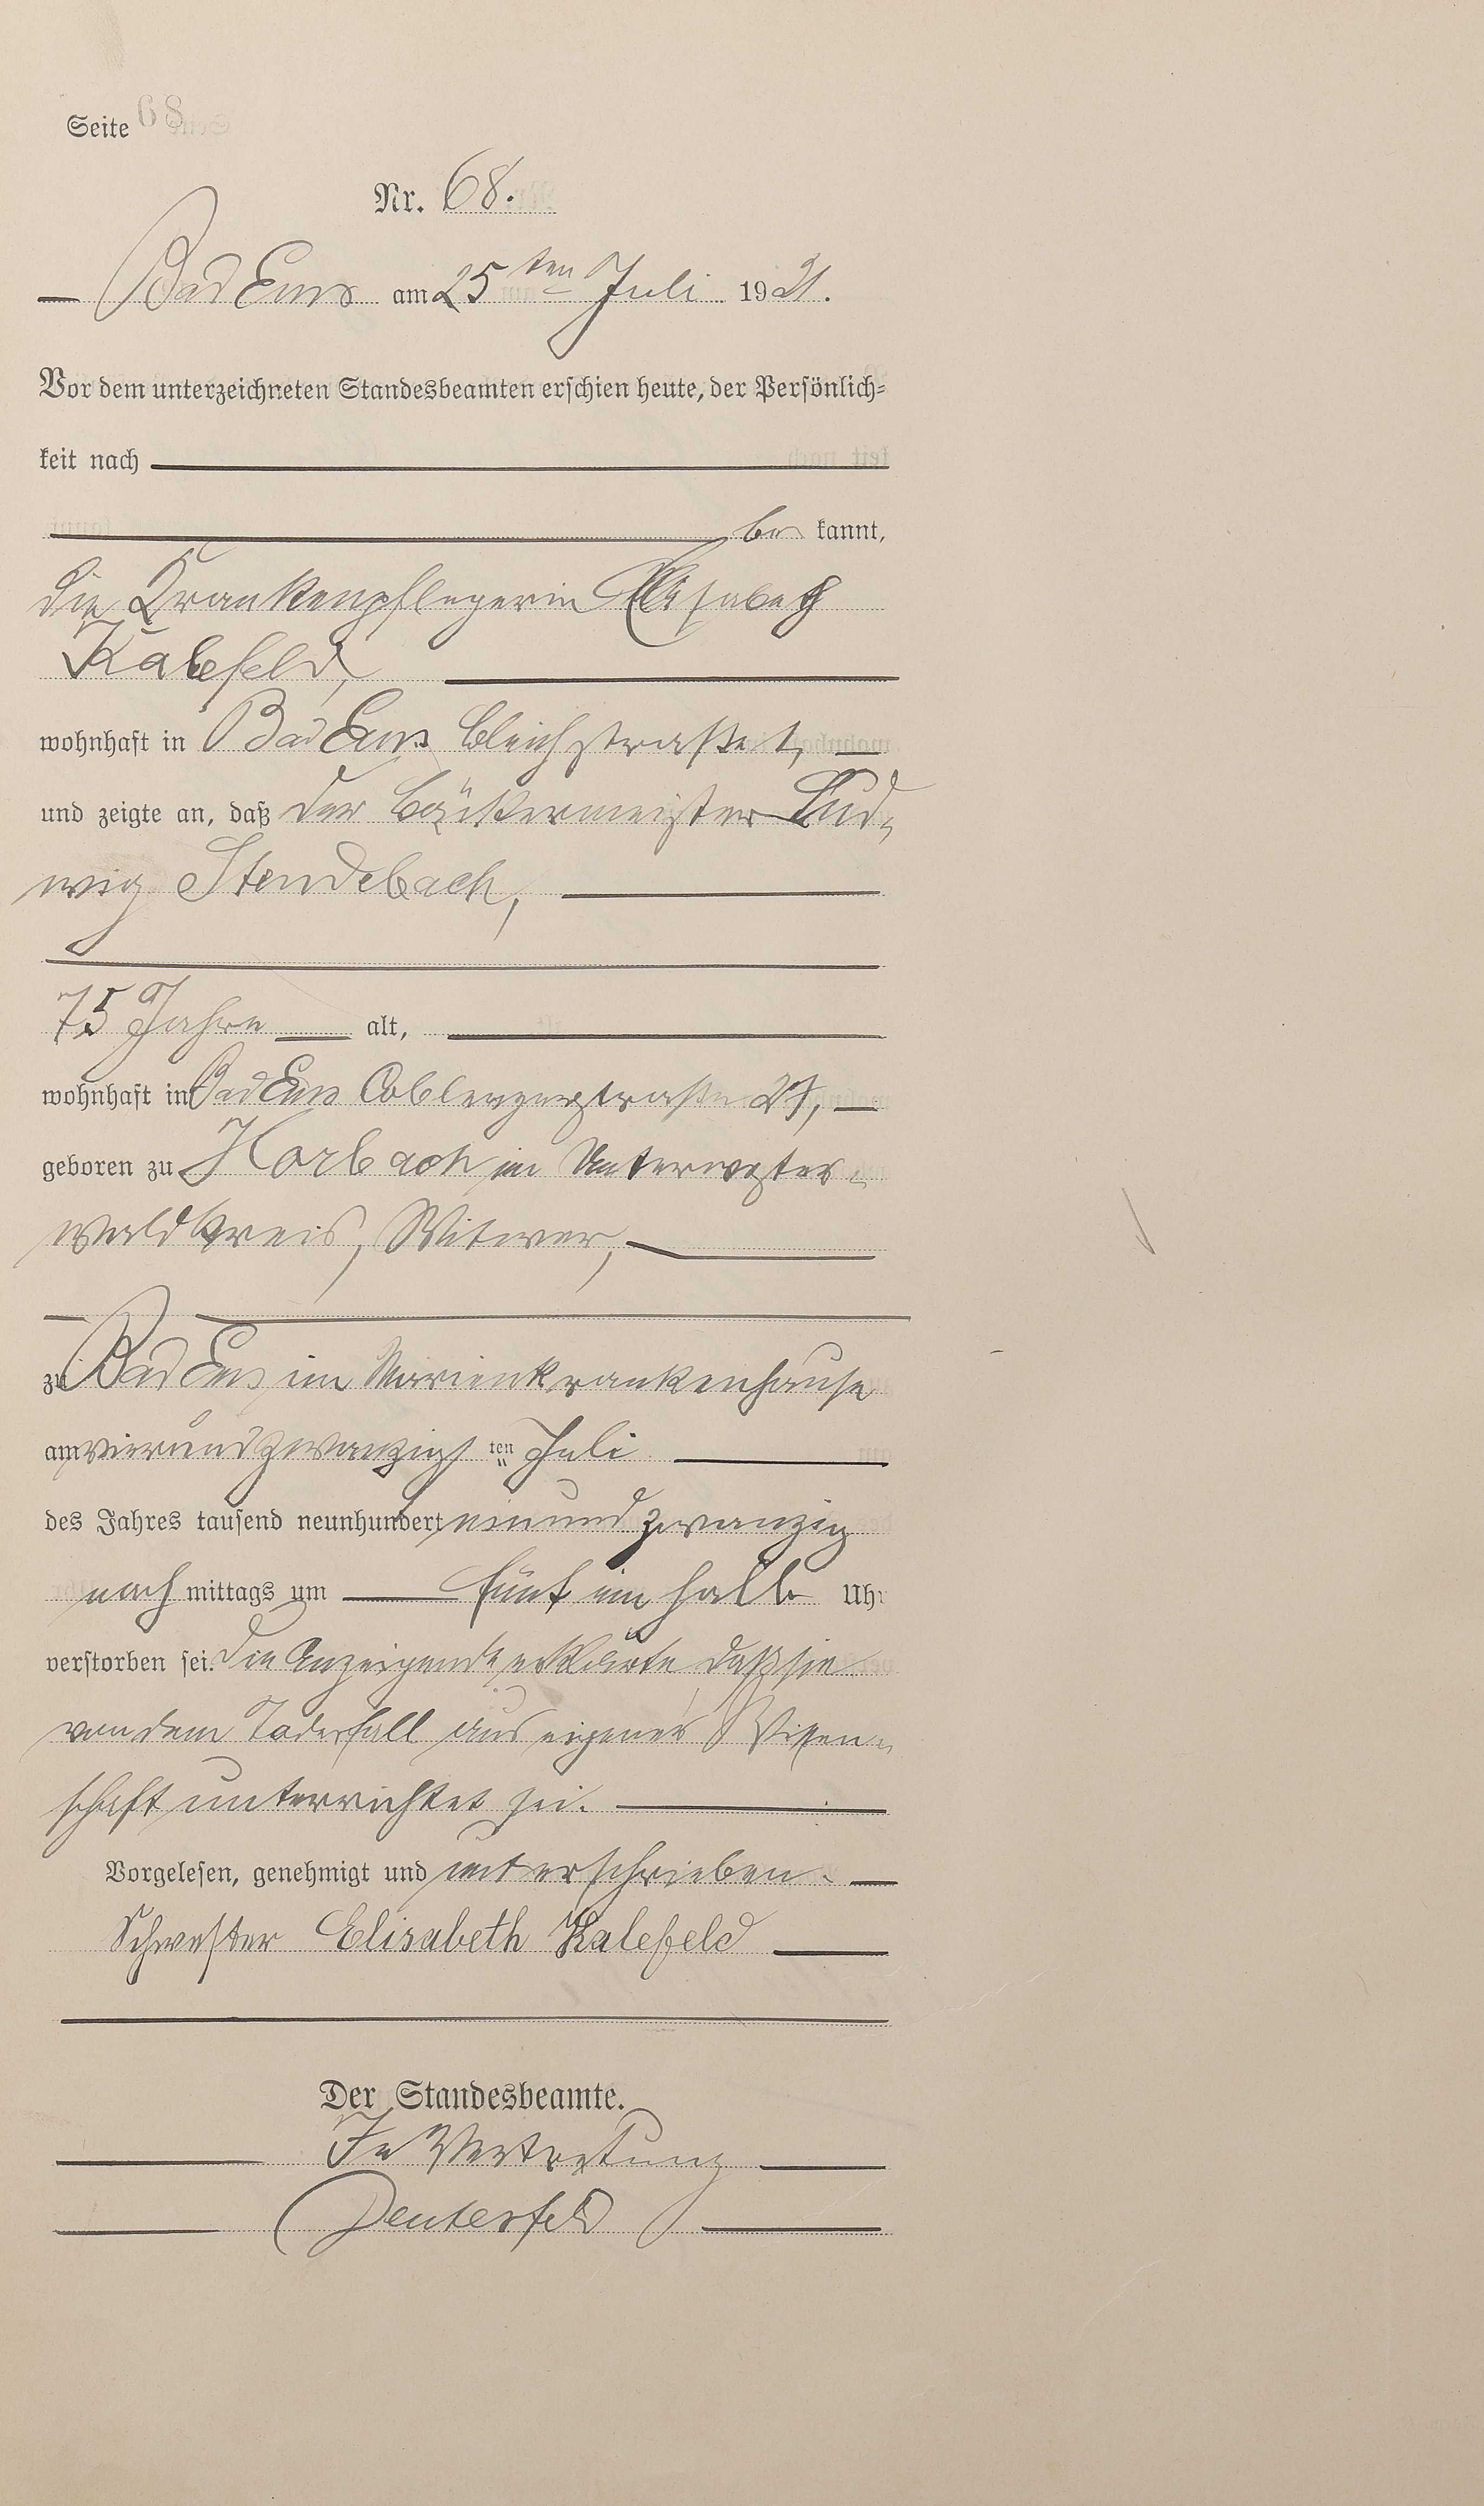 Seite 68
Nr. 68.
Bad Ems am 25 ten Juli 1921.
Vor dem unterzeichneten Standesbeamten erschien heute, der Persönlich-
keit nach
be kannt,
die Krankenpflegerin Elisabeth
Kalefeld,
wohnhaft in Bad Ems Bleichstraße
und zeigte an, daß der Bäckermeister Lud-
wig Stendebach,
75 Jahre alt,
wohnhaft in Bad Ems Coblenzerstraße 27,
geboren zu Horbach im Unterwester-
waldkreis, Witwer,
zu Bad Ems im Marienkrankenhause
am vierundzwanzigsten Juli
des Jahres tausend neunhundert einundzwanzig
nach mittags um fünf ein halb Uhr
verstorben sei. Die Anzeigende erklärte, daß sie
von dem Todesfall aus eigener Wissen-
schaft unterrichtet sei.
Vorgelesen, genehmigt und unterschrieben.
Schwester Elisabeth Kalefeld
Der Standesbeamte.
In Vertretung